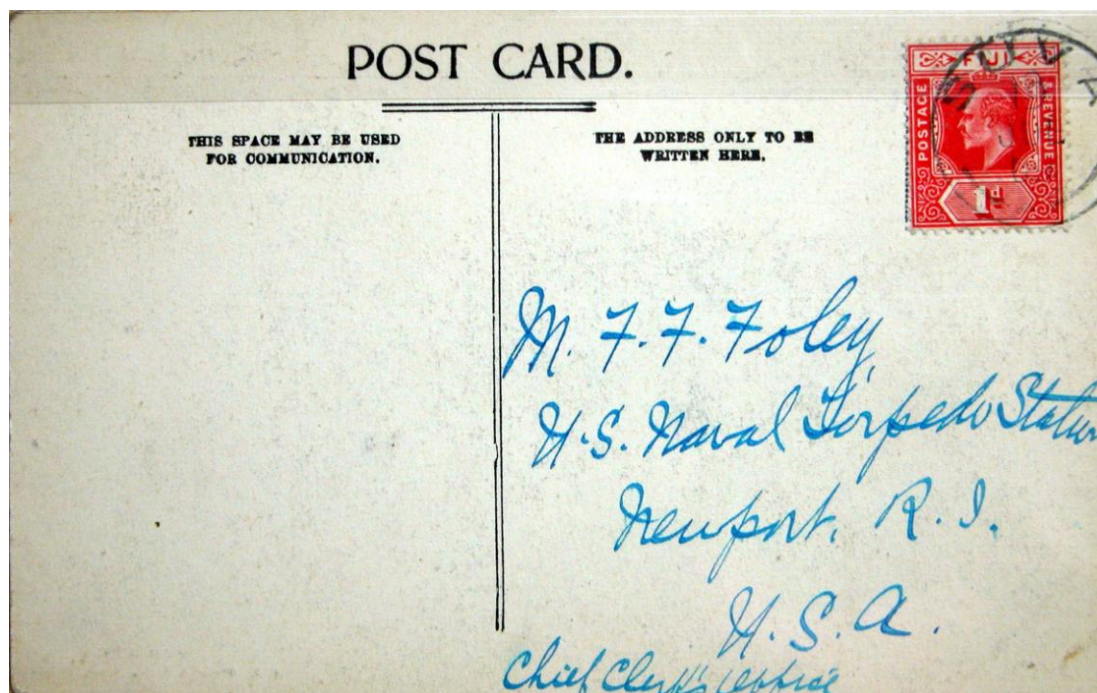 POST CARD.
THIS SPACE MAY BE USED
FOR COMMUNICATION.
THE ADDRESS ONLY TO BE
WRITTEN HERE.
FIJI
POSTAGE
& REVENUE
1d
SUVA
M. F. F. Foley,
U.S. Naval Torpedo Station
Newport, R. I.
U. S. A.
Chief Clerk's Office